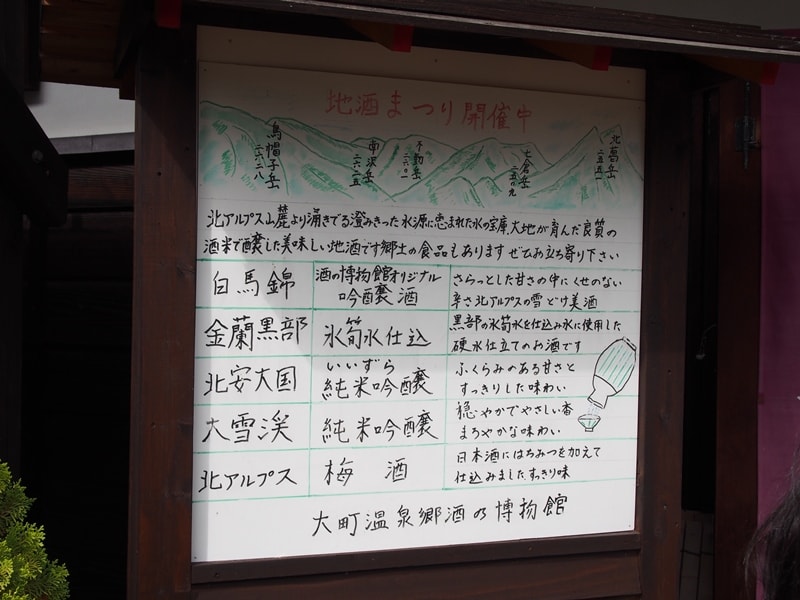 地酒まつり開催中
烏帽子岳
二六二八
南沢岳
二六二五
不動岳
二六〇一
大倉岳
二五〇九
北葛岳
二五五一
北アルプス山麓より湧きでる澄みきった水源に恵まれた水の宝庫、大地が育んだ良質の
酒米で醸した美味しい地酒です郷土の食品もあります ぜひお立ち寄り下さい
白馬錦
酒の博物館オリジナル
吟醸酒
さらっとした甘さの中にくせのない
辛さ北アルプスの雪どけ美酒
金蘭黒部
氷筍水仕込
黒部の氷筍水を仕込み水に使用した
硬水仕立てのお酒です
北安大国
いいずら
純米吟醸
ふくらみのある甘さと
すっきりした味わい
大雪渓
純米吟醸
穏やかでやさしい香
まろやかな味わい
北アルプス
梅酒
日本酒にはちみつを加えて
仕込みました。すっきり味
大町温泉郷酒の博物館